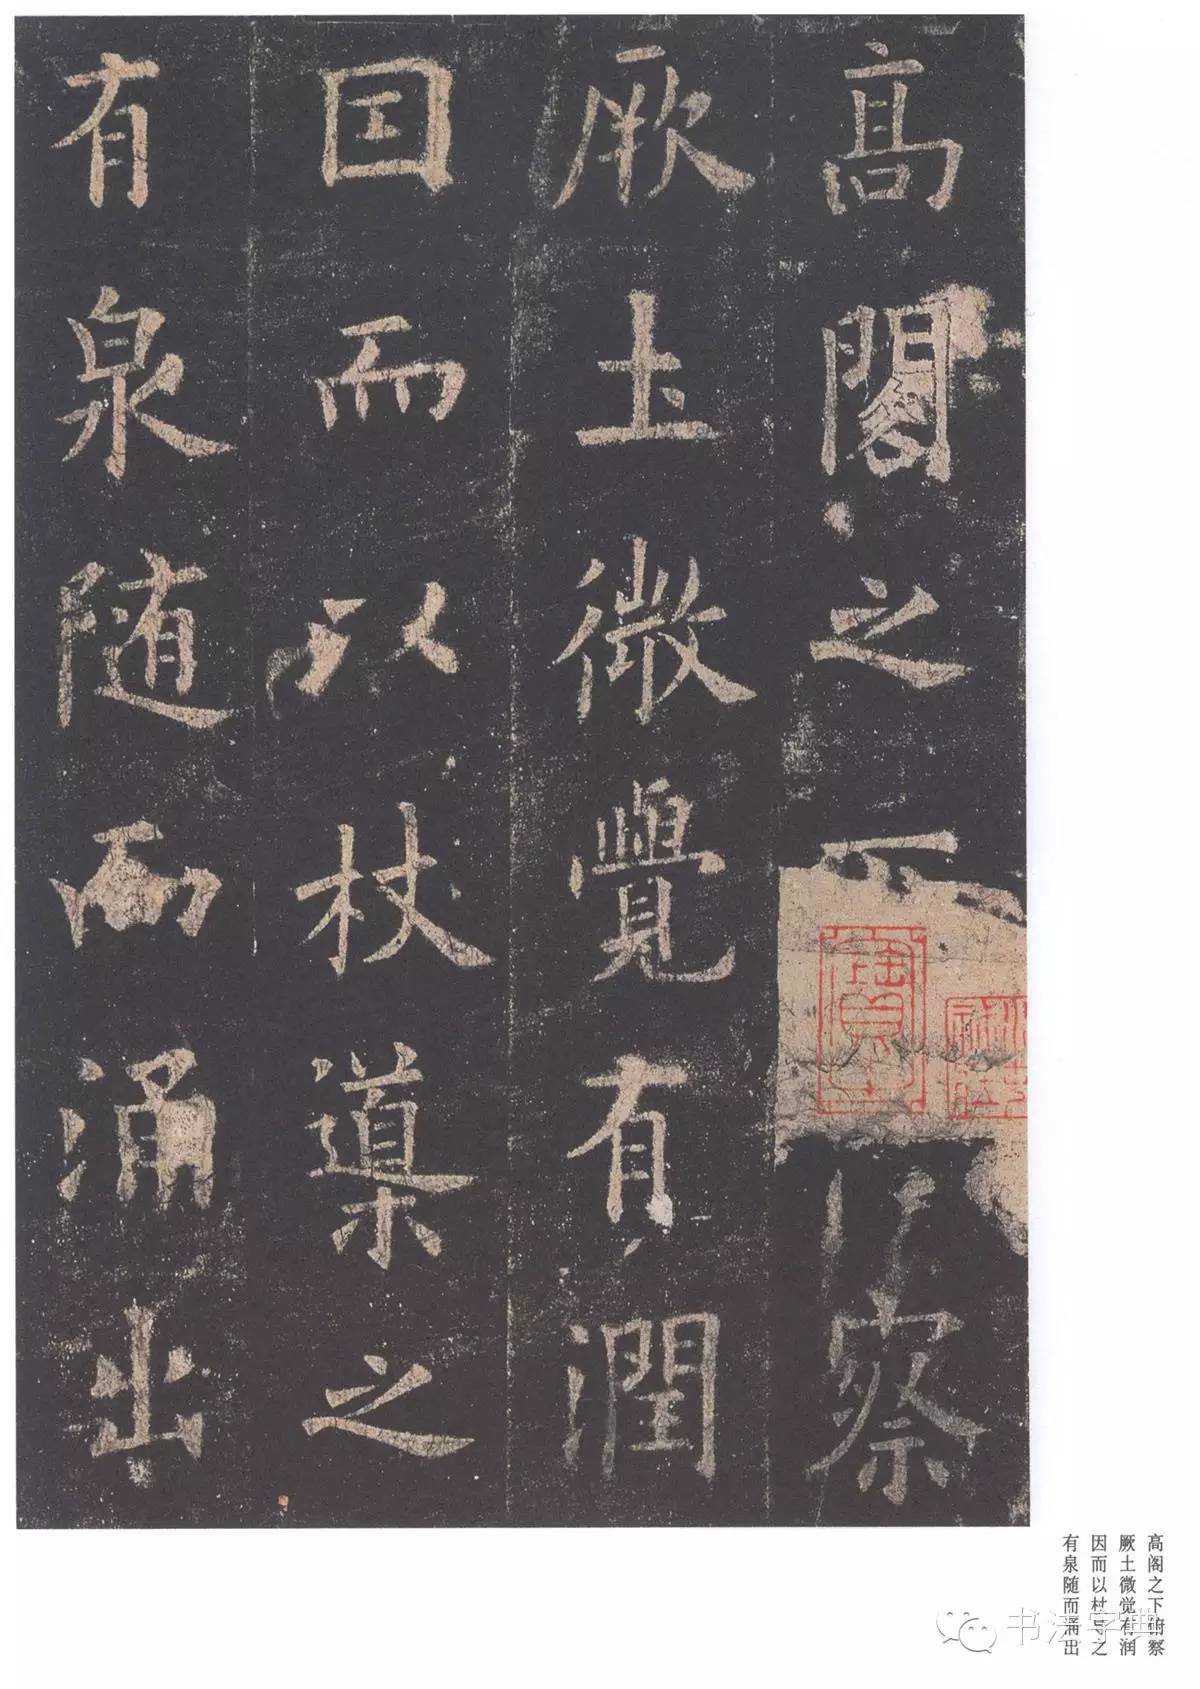 高閣之下察
厥土微覺有潤
因而以杖導之
有泉随而涌出
高阁之下俯察
厥土微觉有润
因而以杖导之
有泉随而涌出
书法字典